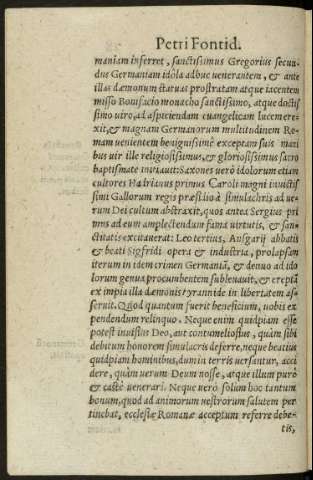 Petri Fontid.
maniam inferret, sanctissimus Gregorius secun-
dus Germaniam idôla adhuc venerantem, & ante
illas dæmonum statuas prostratam atque iacentem
misso Bonifacio monacho sanctissimo, atque doctis
simo viro, ad aspiciendam euangelicam lucem ere-
xit, & magnam Germanorum multitudinem Ro-
mam venientem benignissimè exceptam suis mani
bus vir ille religiosissimus, & gloriosissimus sacro
baptismate initiauit: Saxones verò idolorum etiam
cultores Hadrianus primus Caroli magni inuictis
simi Gallorum regis præsidio à simulachris ad ve-
rum Dei cultum abstraxit, quos antea Sergius pri
mus ad eum amplectendum fama virtutis, & san-
ctitatis excitauerat: Leo tertius, Ansgarij abbatis
& beati Sigfridi opera & industria, prolapsam
iterum in idem crimen Germaniã, & denuo ad ido
lorum genua procumbentem subleuauit, & ereptã
ex impia illa dæmonis tyrannide in libertatem as-
seruit. Quod quantum fuerit beneficium, vobis ex
pendendum relinquo. Neque enim quidpiam esse
potest inuisius Deo, aut contumeliosius, quàm sibi
debitum honorem simulacris deferre, neque beatius
quidpiam hominibus, dum in terris versantur, acci
dere, quàm verum Deum nosse, atque illum purè
& castè venerari. Neque verò solùm hoc tantum
bonum, quod ad animorum vestrorum salutem per
tinebat, ecclesiæ Romanæ acceptum referre debe-
tis,